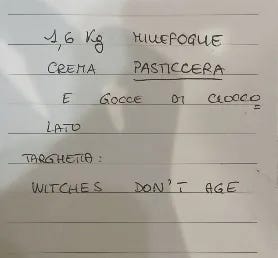 1,6 Kg MILLEFOGLIE
CREMA PASTICCERA
E GOCCE DI CIOCCO=
LATO
TARGHETTA:
WITCHES DON'T AGE